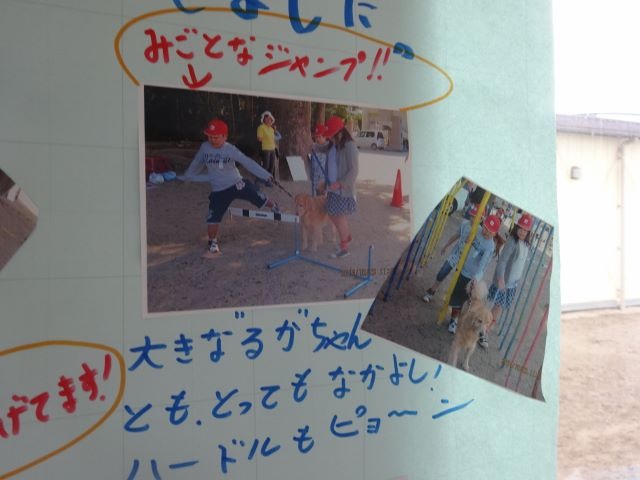 しました
みごとなジャンプ!!
大きなるがちゃん
とも、とってもなかよし!
げてます!
ハードルもピョ〜ン